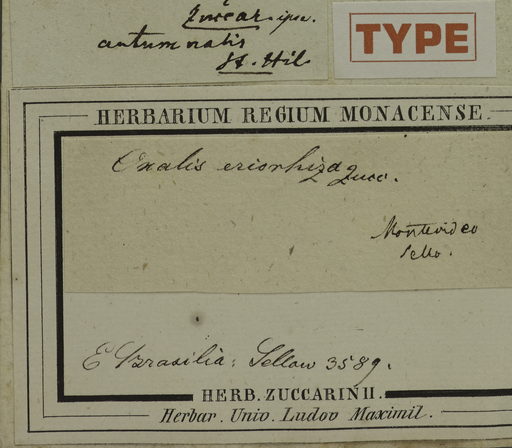 Zuccar. ipse.
autumnalis
St. Hil.
TYPE
HERBARIUM REGIUM MONACENSE.
Oxalis eriorhiza Zucc.
Montevideo
Sello.
E Brasilia: Sellow 3589.
HERB. ZUCCARINII.
Herbar. Univ. Ludov Maximil.